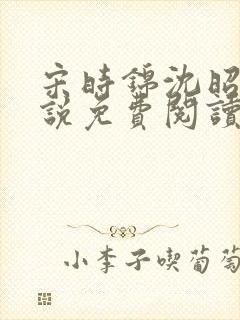 宋時錦沈昭
說免費閱讀
小李子喫葡萄